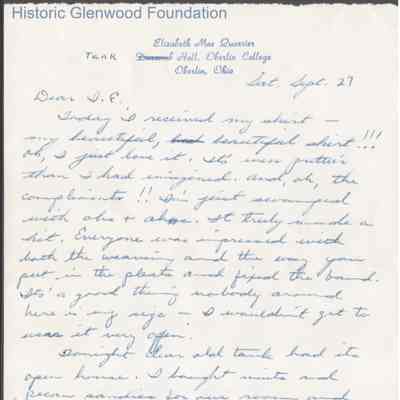 Historic Glenwood Foundation
Elizabeth Mae Quarrier
TANK Hall, Oberlin College
Oberlin, Ohio
Sat. Sept. 27
Dear D.E.,
Today I received my skirt —
my beautiful, beautiful skirt!!!
Oh, I just love it. It's even prettier
than I had envisioned. And, oh, the
compliments!! I'm just swamped
with ohs + ahs. It truly made a
hit. Everyone was impressed with
both the weaving and the way you
put in the pleats and fixed the band.
It's a good thing nobody around
here is my size — I wouldn't get to
wear it very often.
Tonight dear old tank had its
open house. I bought mints and
pecan sandies for our room and